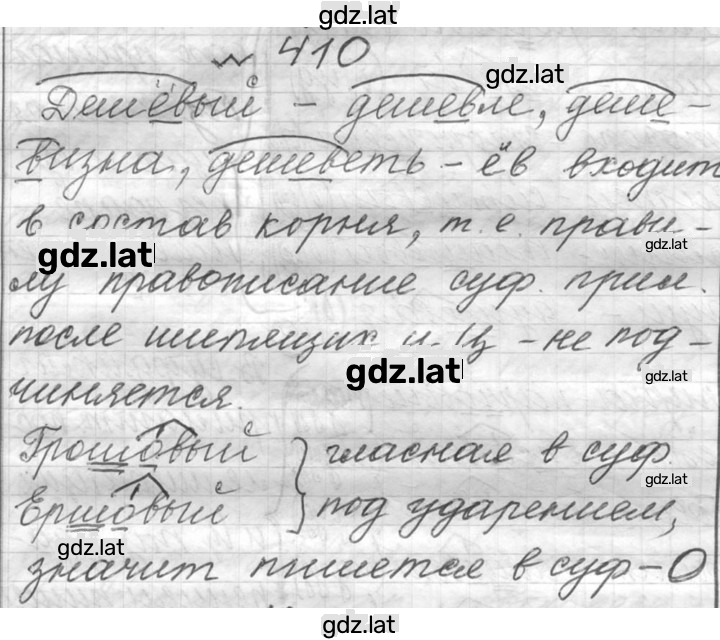 gdz.lat
~ 410
gdz.lat
Дешёвый - дешевле, деше-
визна, дешеветь - ёв входит
в состав корня, т. е. прави-
gdz.lat
gdz.lat
лу правописание суф. прил.
после шипящих и Ц - не под-
gdz.lat
gdz.lat
чиняется.
Грошовый } гласная в суф.
gdz.lat
Ершовый } под ударением,
gdz.lat
значит пишется в суф - О
gdz.lat